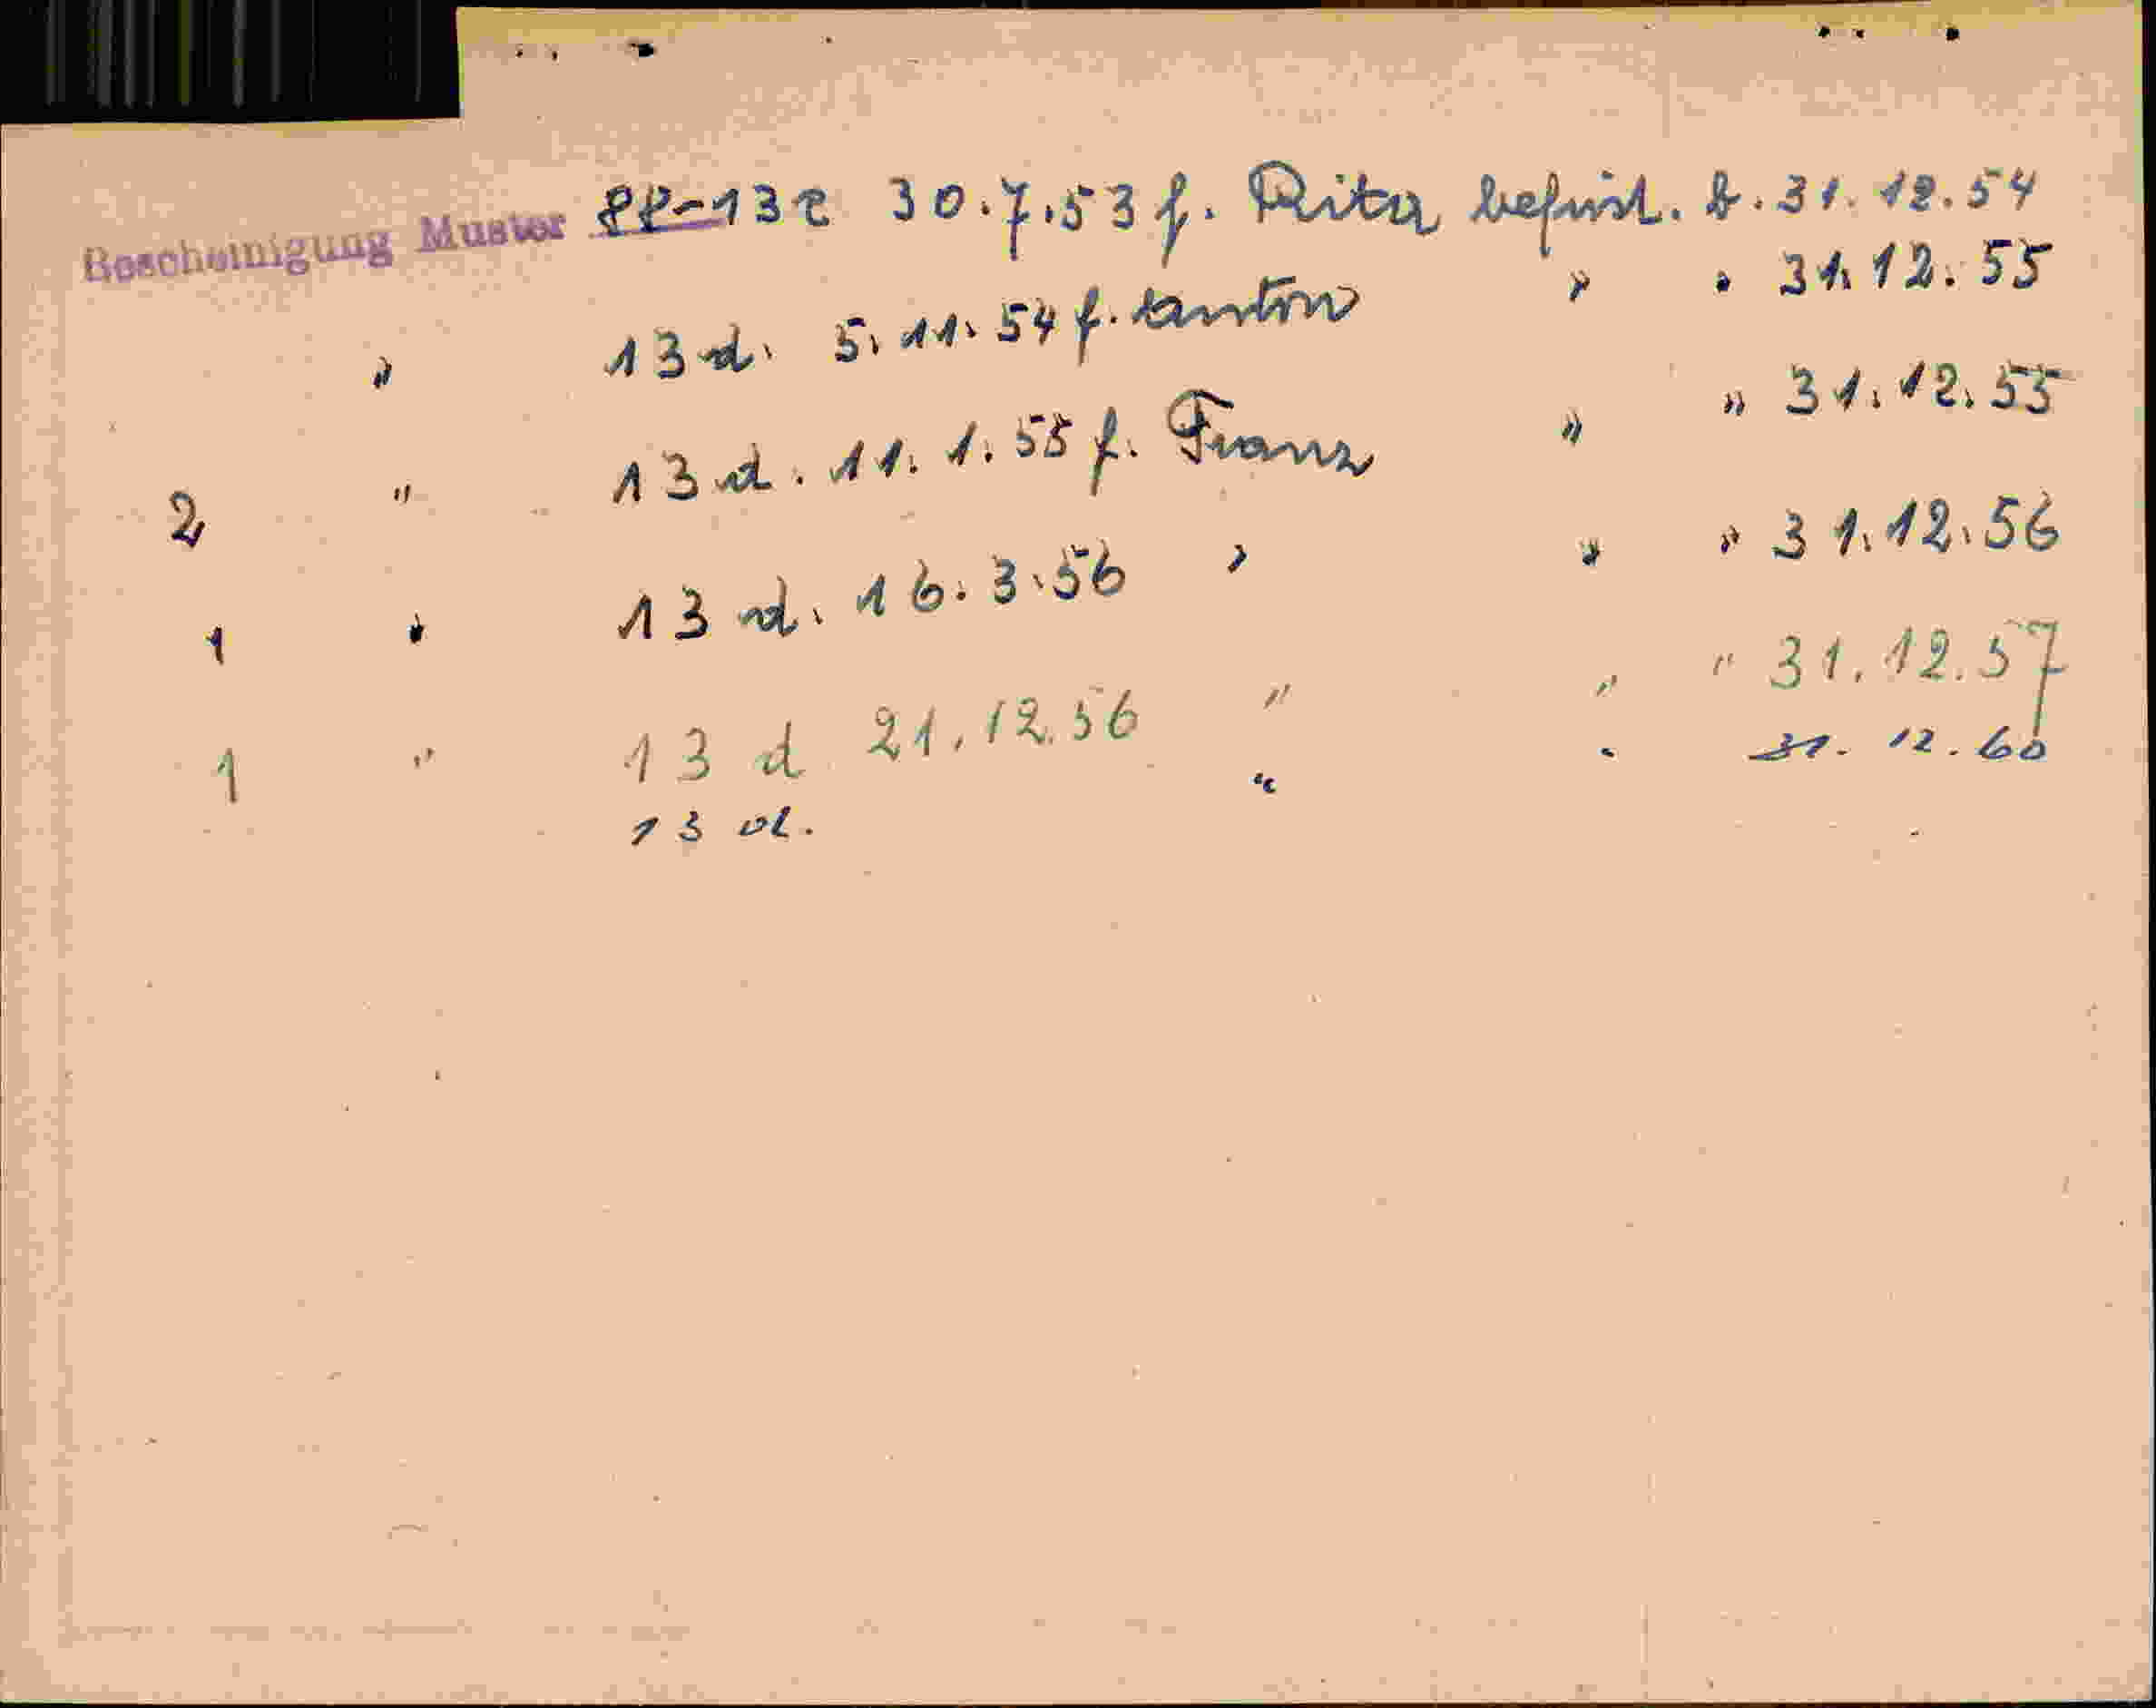 Bescheinigung Muster 88-13c 30.7.53 f. Rita befrist. b. 31.12.54
" 13 d. 5.11.54 f. Anton " " 31.12.55
2 " 13 d. 11.1.55 f. Franz " " 31.12.55
1 " 13 d. 16.3.56 " " " 31.12.56
1 " 13 d. 21.12.56 " " " 31.12.57
13 d. " " 31.12.60